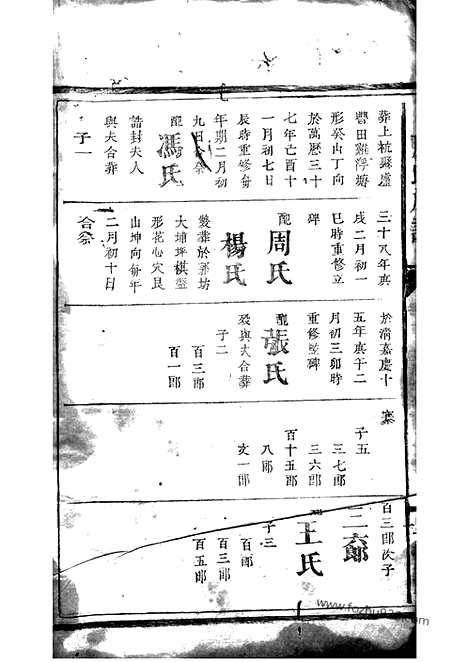 葬上杭勝運
豐田雞浮塘
形癸山丁向
於萬曆三十
七年己酉十
一月初七日
辰時重修每
年期二月初
九日合祭
配馮氏
誥封夫人
與夫合葬
子一
三十八年庚
戌二月初一
巳時重修立
碑
配周氏
楊氏
大埔坪棋盤
形花心穴艮
山坤向每年
二月初十日
合祭
於清嘉慶十
五年庚午二
月初三卯時
重修豎碑
配張氏
歿與夫合葬
子二
百三郎
百一郎
子五
三七郎
三六郎
百十五郎
八郎
文一郎
百三郎次子
三六郎
王氏
子三
百郎
百三郎
百五郎
www.fozhu920.com